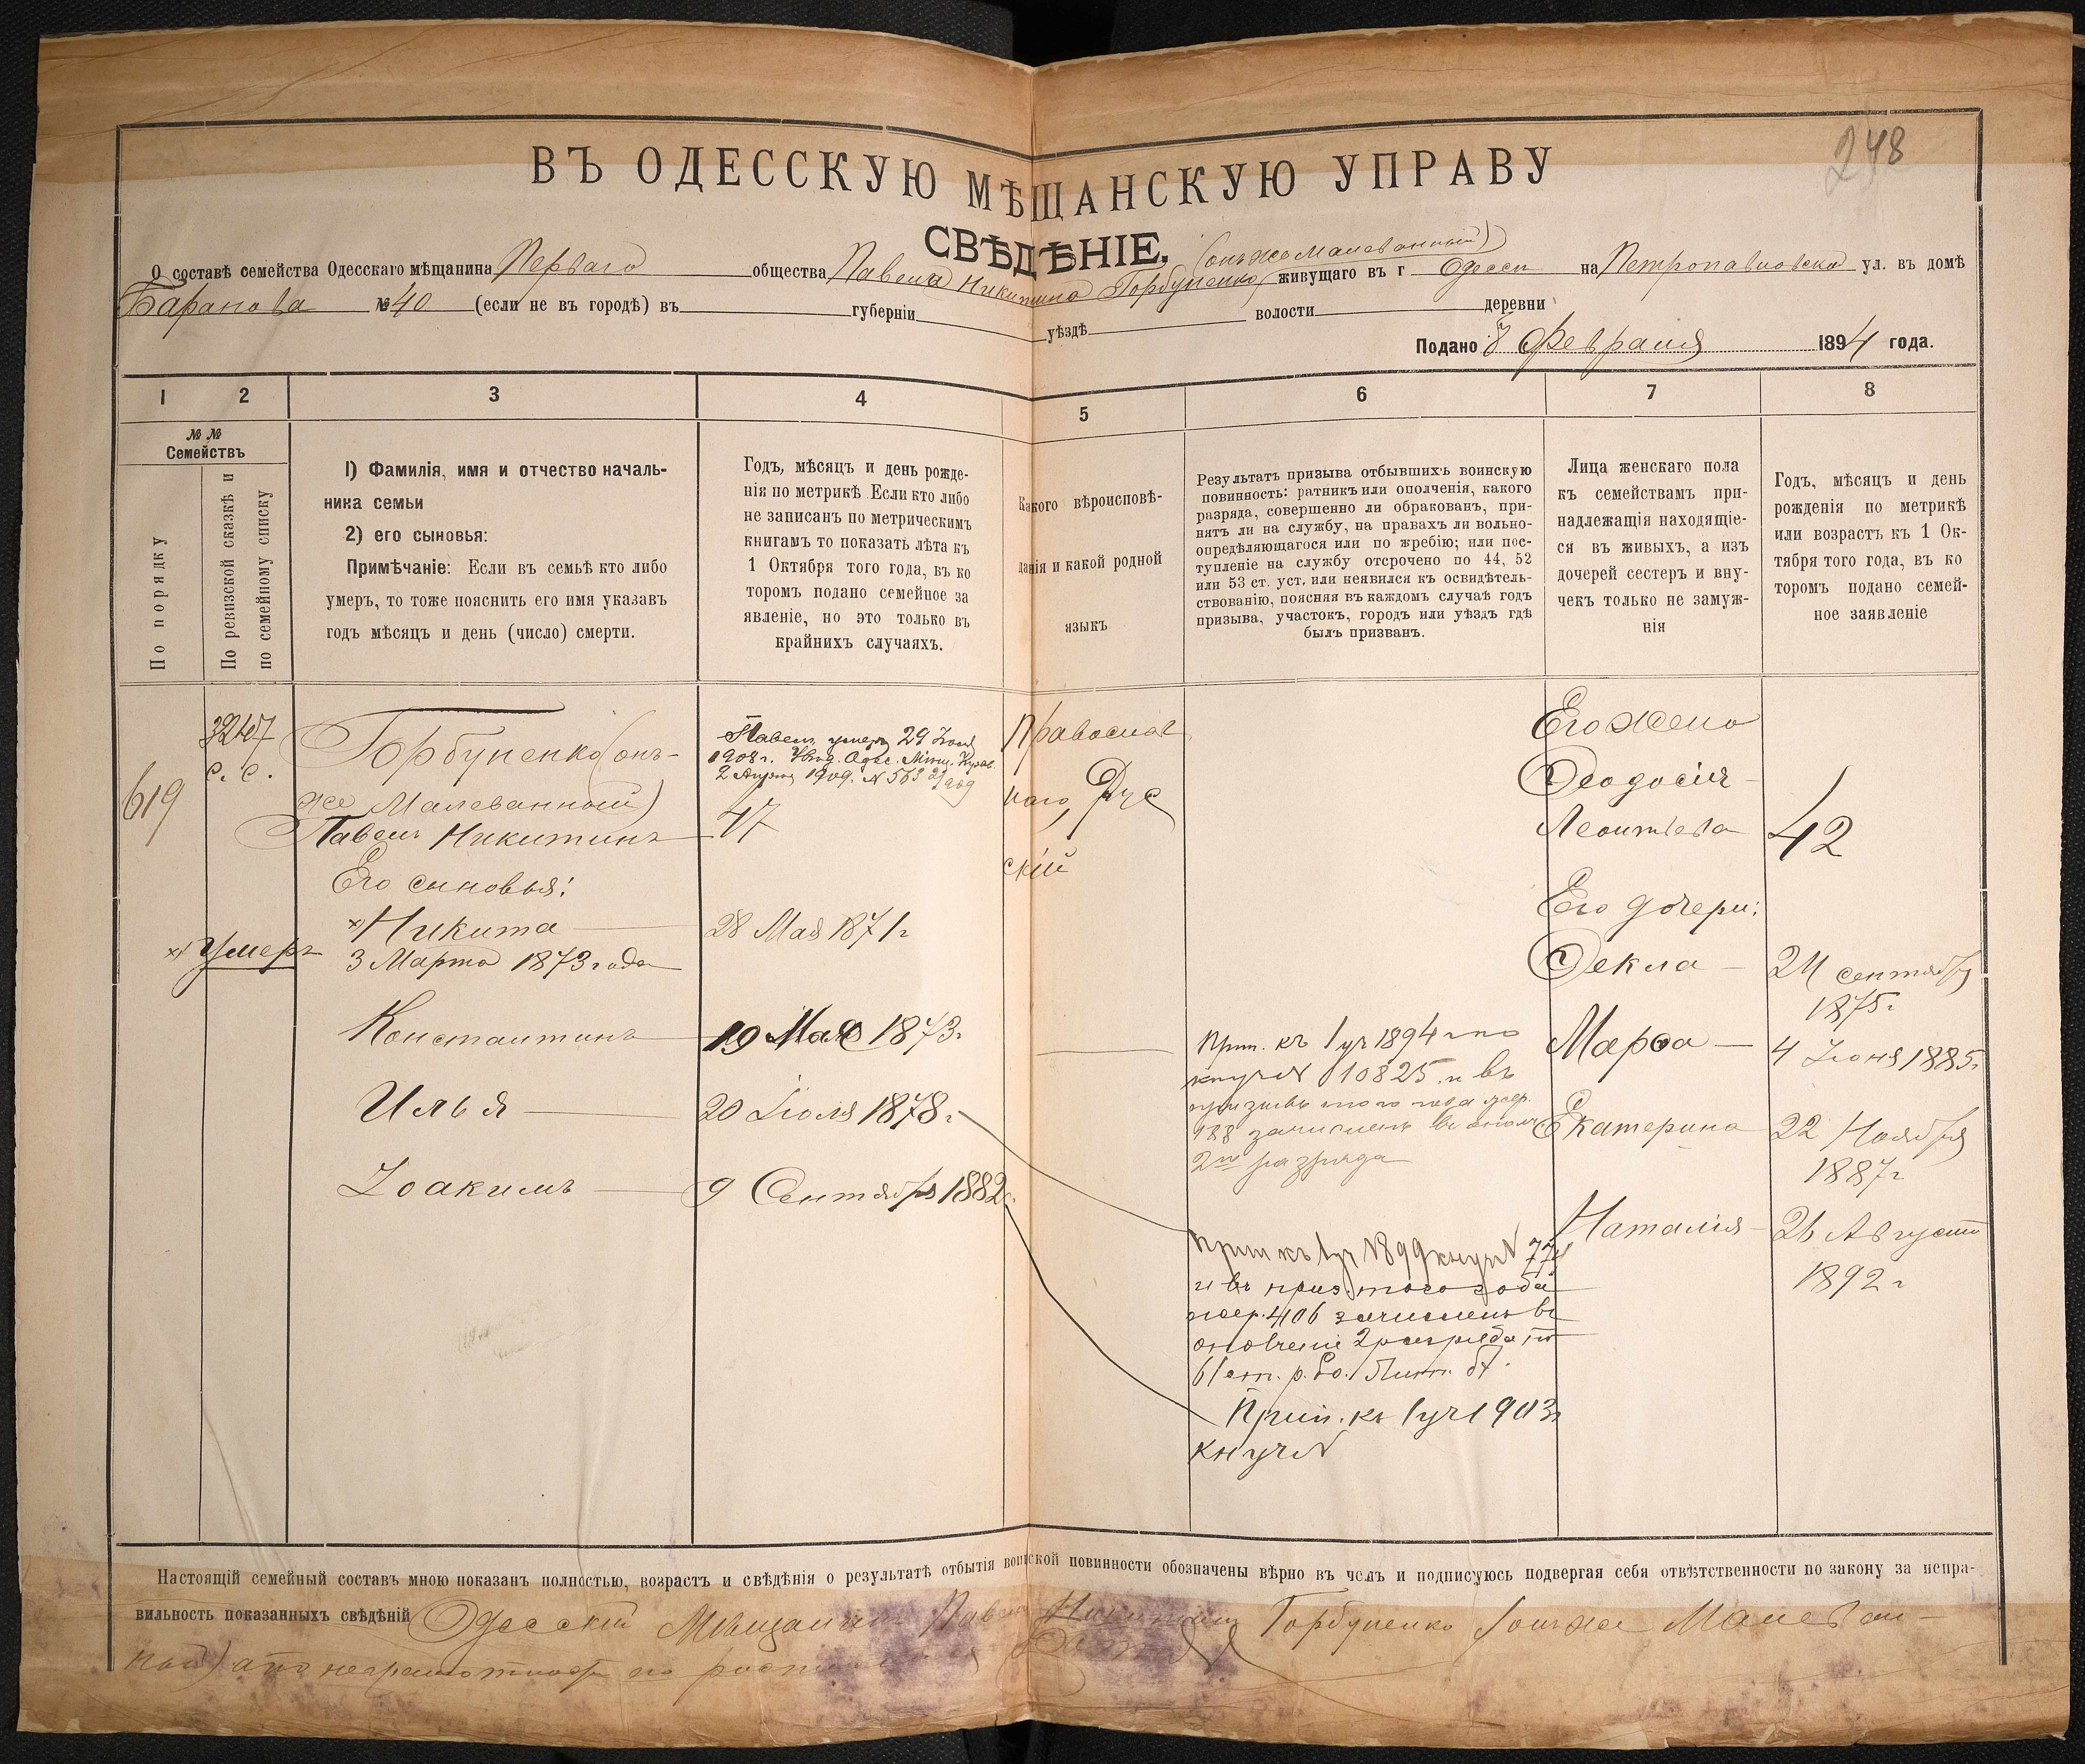 248
ВЪ ОДЕССКУЮ МѢЩАНСКУЮ УПРАВУ
СВѢДѢНІЕ,
(онъ же Малеванный)
О составѣ семейства Одесскаго мѣщанина Перваго общества Павела Никитина Горбуненко, живущаго въ г Одессы на Петропавловской ул. въ домѣ
Баранова № 40 (если не въ городѣ) въ губерніи уѣздѣ волости деревни
Подано 8 Февраля 1894 года.
1 2 3 4 5 6 7 8
№ №
Семействъ
По порядку
По ревизской сказкѣ и
по семейному списку
1) Фамилія, имя и отчество началь-
ника семьи
2) его сыновья:
Примѣчаніе: Если въ семьѣ кто либо
умеръ, то тоже пояснить его имя указавъ
годъ мѣсяцъ и день (число) смерти.
Годъ, мѣсяцъ и день рожде-
нія по метрикѣ Если кто либо
не записанъ по метрическимъ
книгамъ то показать лѣта къ
1 Октября того года, въ ко
торомъ подано семейное за
явленіе, но это только въ
крайнихъ случаяхъ.
Какого вѣроисповѣ-
данія и какой родной
языкъ
Результатъ призыва отбывшихъ воинскую
повинность: ратникъ или ополченія, какого
разряда, совершенно ли обракованъ, при-
нятъ ли на службу, на правахъ ли вольно-
опредѣляющагося или по жребію; или пос-
тупленіе на службу отсрочено по 44, 52
или 53 ст. уст. или неявился къ освидѣтель-
ствованію, поясняя въ каждомъ случаѣ годъ
призыва, участокъ, городъ или уѣздъ гдѣ
былъ призванъ.
Лица женскаго пола
къ семействамъ при-
надлежащія находящіе-
ся въ живыхъ, а изъ
дочерей сестеръ и вну-
чекъ только не замуж-
нія
Годъ, мѣсяцъ и день
рожденія по метрикѣ
или возрастъ къ 1 Ок-
тября того года, въ ко
торомъ подано семей-
ное заявленіе
619
с. с.
Горбуненко (онъ-
же Малеванный)
Павелъ Никитинъ
Его сыновья:
х Никита
х Умеръ 3 Марта 1873 года
Константинъ
Илья
Іоакимъ
Павелъ умеръ 29 Іюля
1908 г. Одес. Мѣщ.
2 Апрѣля 1909. N 563
47
28 Мая 1871 г
19 Мая 1873 г
20 Іюля 1878 г
9 Сентября 1882 г.
Православ
наго, Рус
скій
Прип. къ 1 уч 1894 г по
кн уч N 10825 и въ
призывъ того года жер.
188 зачисленъ въ ополч
2го разряда
Прип къ 1 уч 1899 кн уч N
и въ приз. того года
жер. 406 зачисленъ въ
ополченіе 2 разряда
Прип. къ 1 уч 1903 г
кн уч N
Его жена
Ѳеодосія
Леонтьева
Его дочери:
Ѳекла
Марѳа
Екатерина
Наталія
42
24 сентября
1875 г
4 Іюня 1885 г
22 Ноября
1887 г
26 Августа
1892 г
Настоящій семейный составъ мною показанъ полностью, возрастъ и свѣдѣнія о результатѣ отбытія воинской повинности обозначены вѣрно въ чемъ и подписуюсь подвергая себя отвѣтственности по закону за непра-
вильность показанныхъ свѣдѣній Одесскій Мѣщанинъ Павелъ Никитинъ Горбуненко (онъ же Малеван-
ный) а по неграмотности